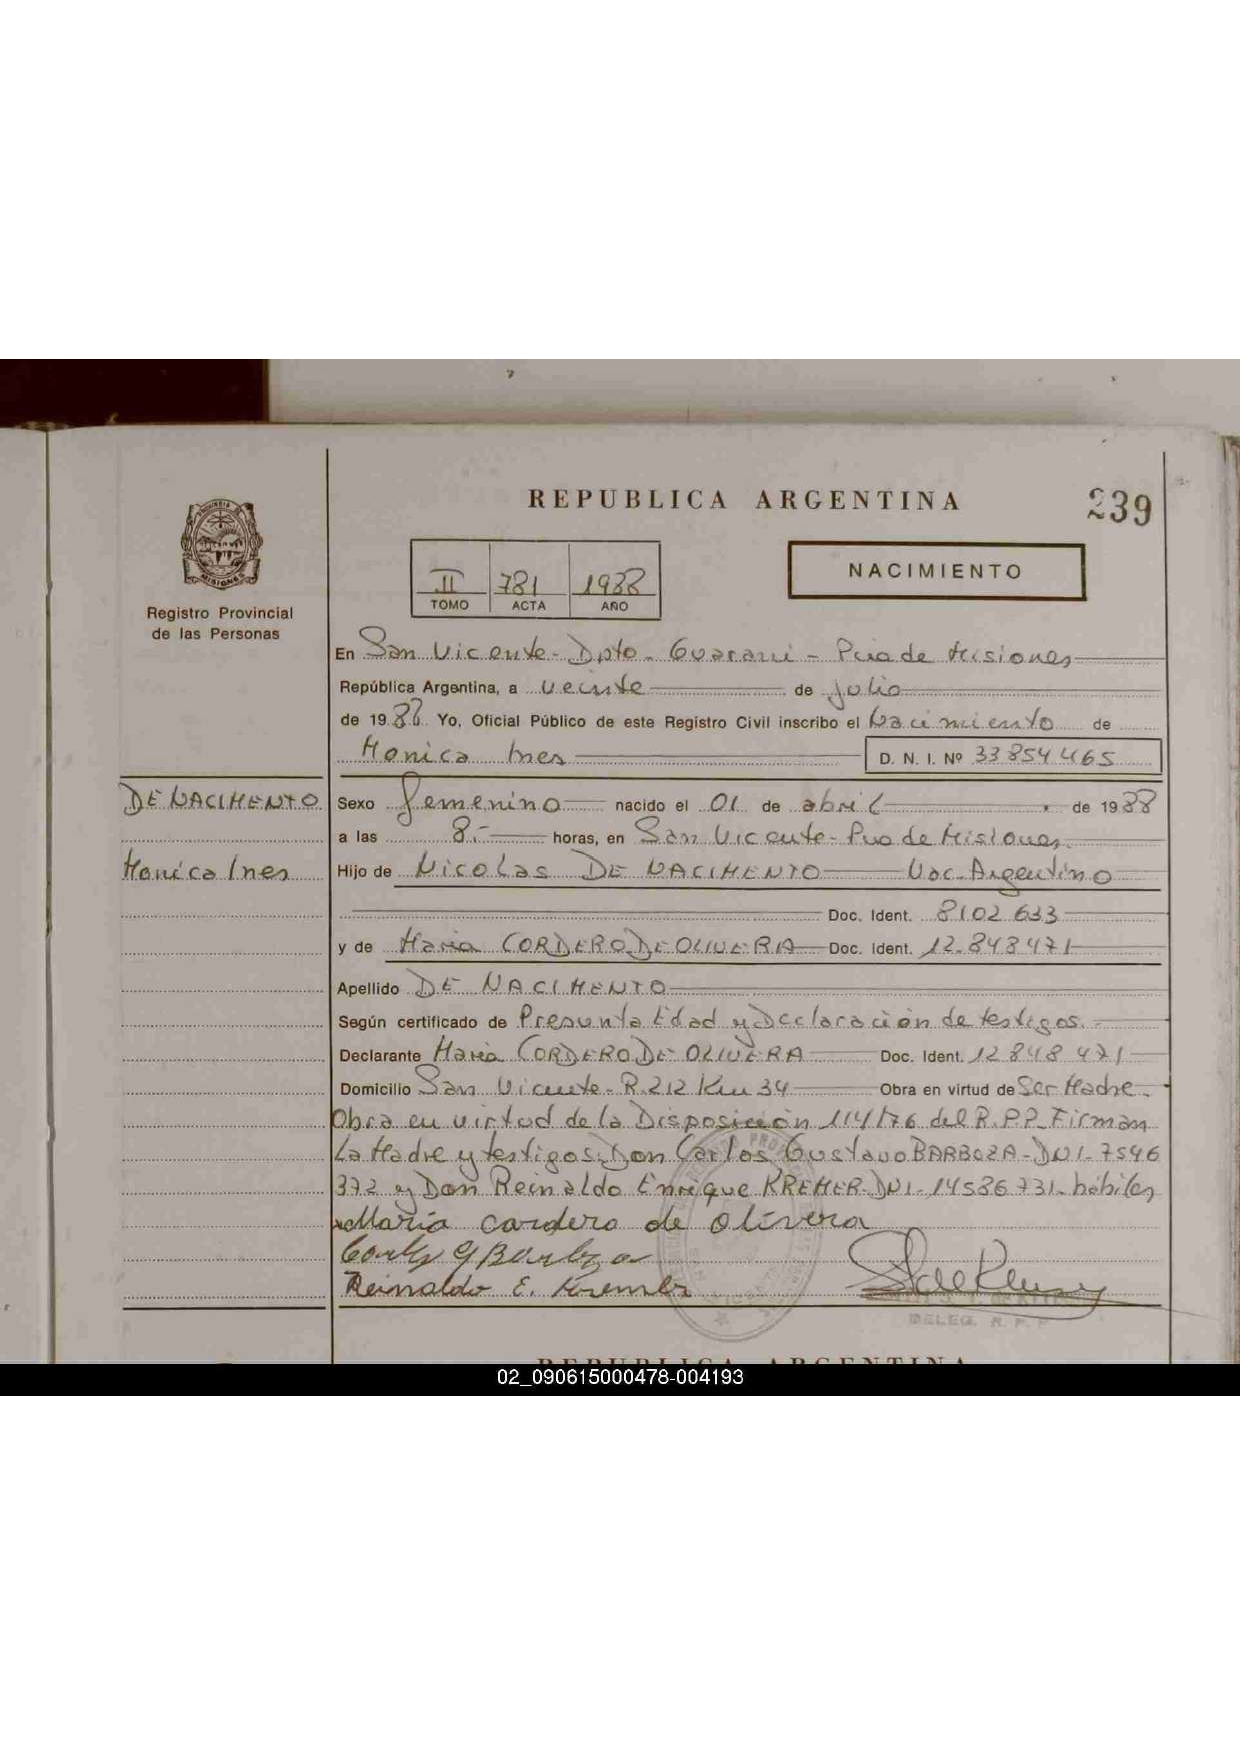 REPUBLICA ARGENTINA
239
II 781 1988
TOMO ACTA AÑO
NACIMIENTO
Registro Provincial
de las Personas
En San Vicente - Dpto - Guarani - Pcia de Misiones
República Argentina, a veinte de Julio
de 1988 Yo, Oficial Público de este Registro Civil inscribo el Nacimiento de
Monica Ines D. N. I. Nº 33854465
DE NACIMENTO
Sexo femenino nacido el 01 de abril de 1988
a las 8.- horas, en San Vicente - Pcia de Misiones.
Monica Ines
Hijo de Nicolas DE NACIMENTO Nac. Argentino
Doc. Ident. 8102.633
y de Maria CORDERO DE OLIVERIA Doc. Ident. 12.848471
Apellido DE NACIMENTO
Según certificado de Presunta Edad y Declaración de testigos.-
Declarante Maria CORDERO DE OLIVERA Doc. Ident. 12848471
Domicilio San Vicente - R.212 Km 34 Obra en virtud de Ser Madre.-
Obra en virtud de la Disposición 114/76 del R.P.P. Firman
La Madre y testigos: Don Carlos Gustavo BARBOZA - DNI - 7546
372 y Don Reinaldo Enrique KREMER - DNI - 14536731 - hábiles
Maria cordero de olivera
Carlos G Barboza
Reinaldo E. Kremer
DELEG. R. P. P.
REPUBLICA ARGENTINA
02_090615000478-004193